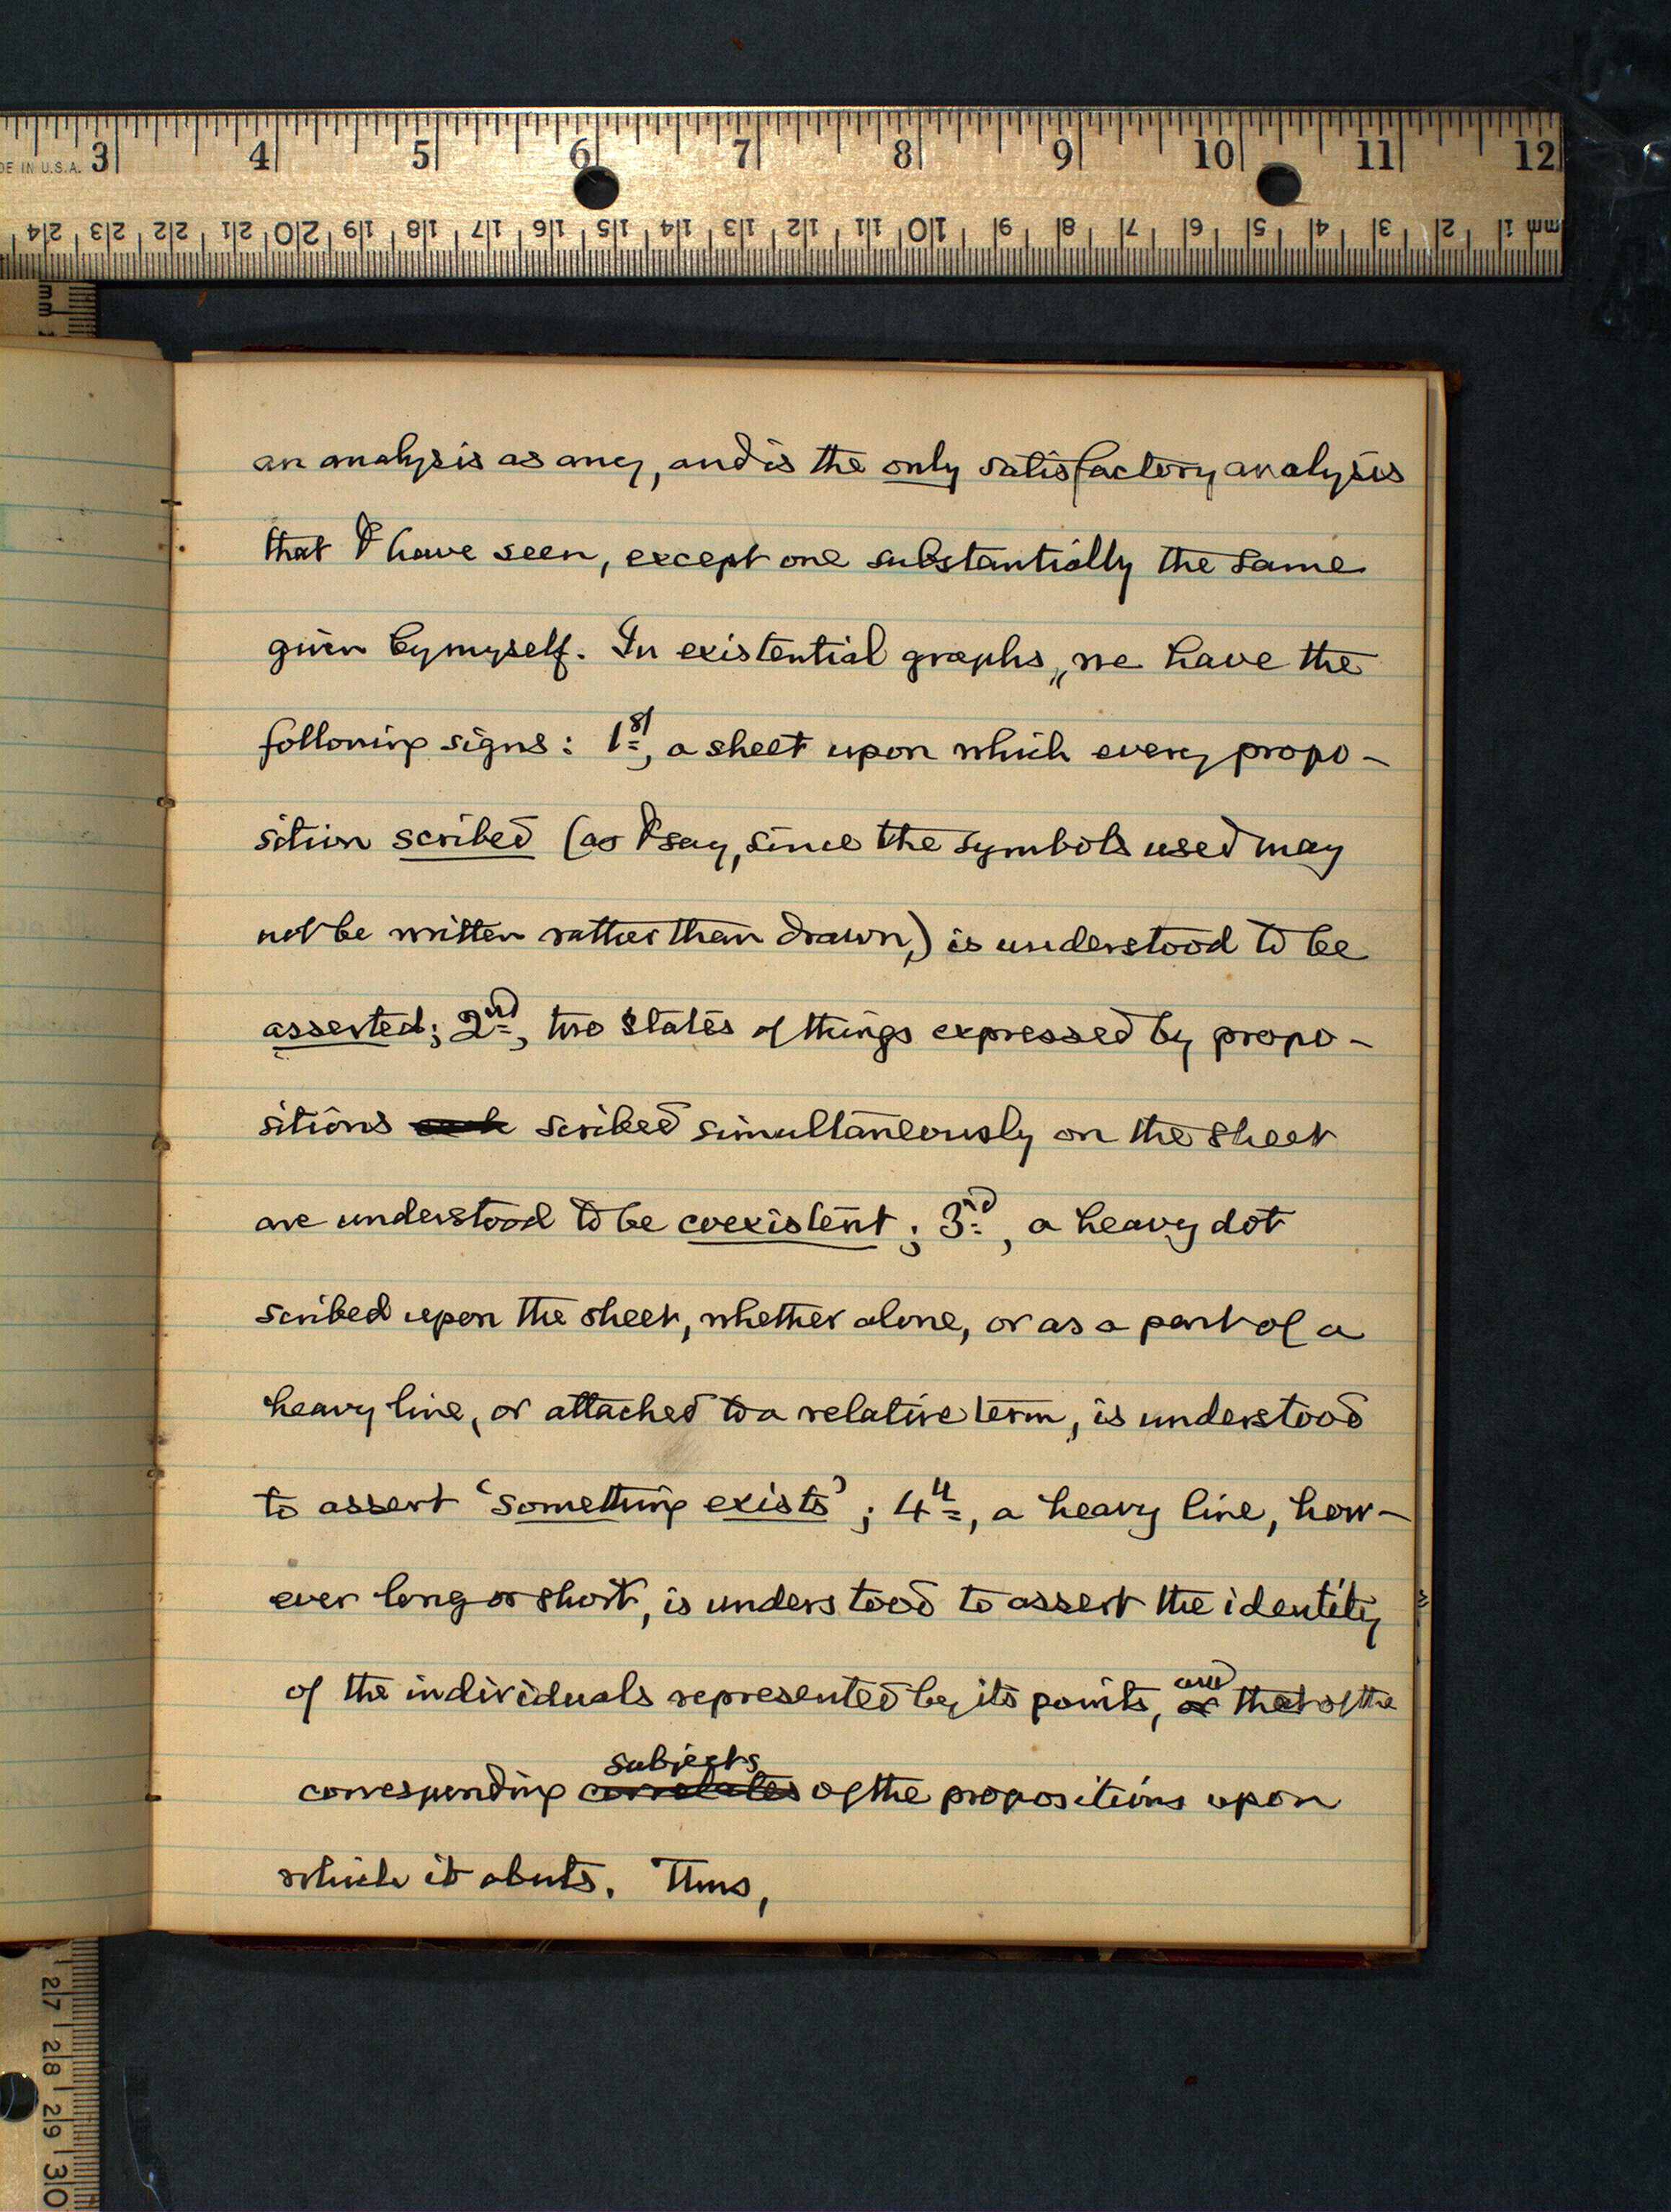 DE IN U.S.A. 3 4 5 6 7 8 9 10 11 12
24 23 22 21 20 19 18 17 16 15 14 13 12 11 10 9 8 7 6 5 4 3 2 1 mm
mm
an analysis as any, and is the only satisfactory analysis
that I have seen, except one substantially the same
given by myself. In existential graphs, we have the
following signs: 1st, a sheet upon which every propo-
sition scribed (as I say, since the symbols used may
not be written rather than drawn,) is understood to be
asserted; 2nd, two states of things expressed by propo-
sitions scribed simultaneously on the sheet
are understood to be coexistent; 3rd, a heavy dot
scribed upon the sheet, whether alone, or as a part of a
heavy line, or attached to a relative term, is understood
to assert 'something exists'; 4th, a heavy line, how-
ever long or short, is understood to assert the identity
and
of the individuals represented by its points, or that of the
subjects
corresponding correlates of the propositions upon
which it abuts. Thus,
27
28
29
30